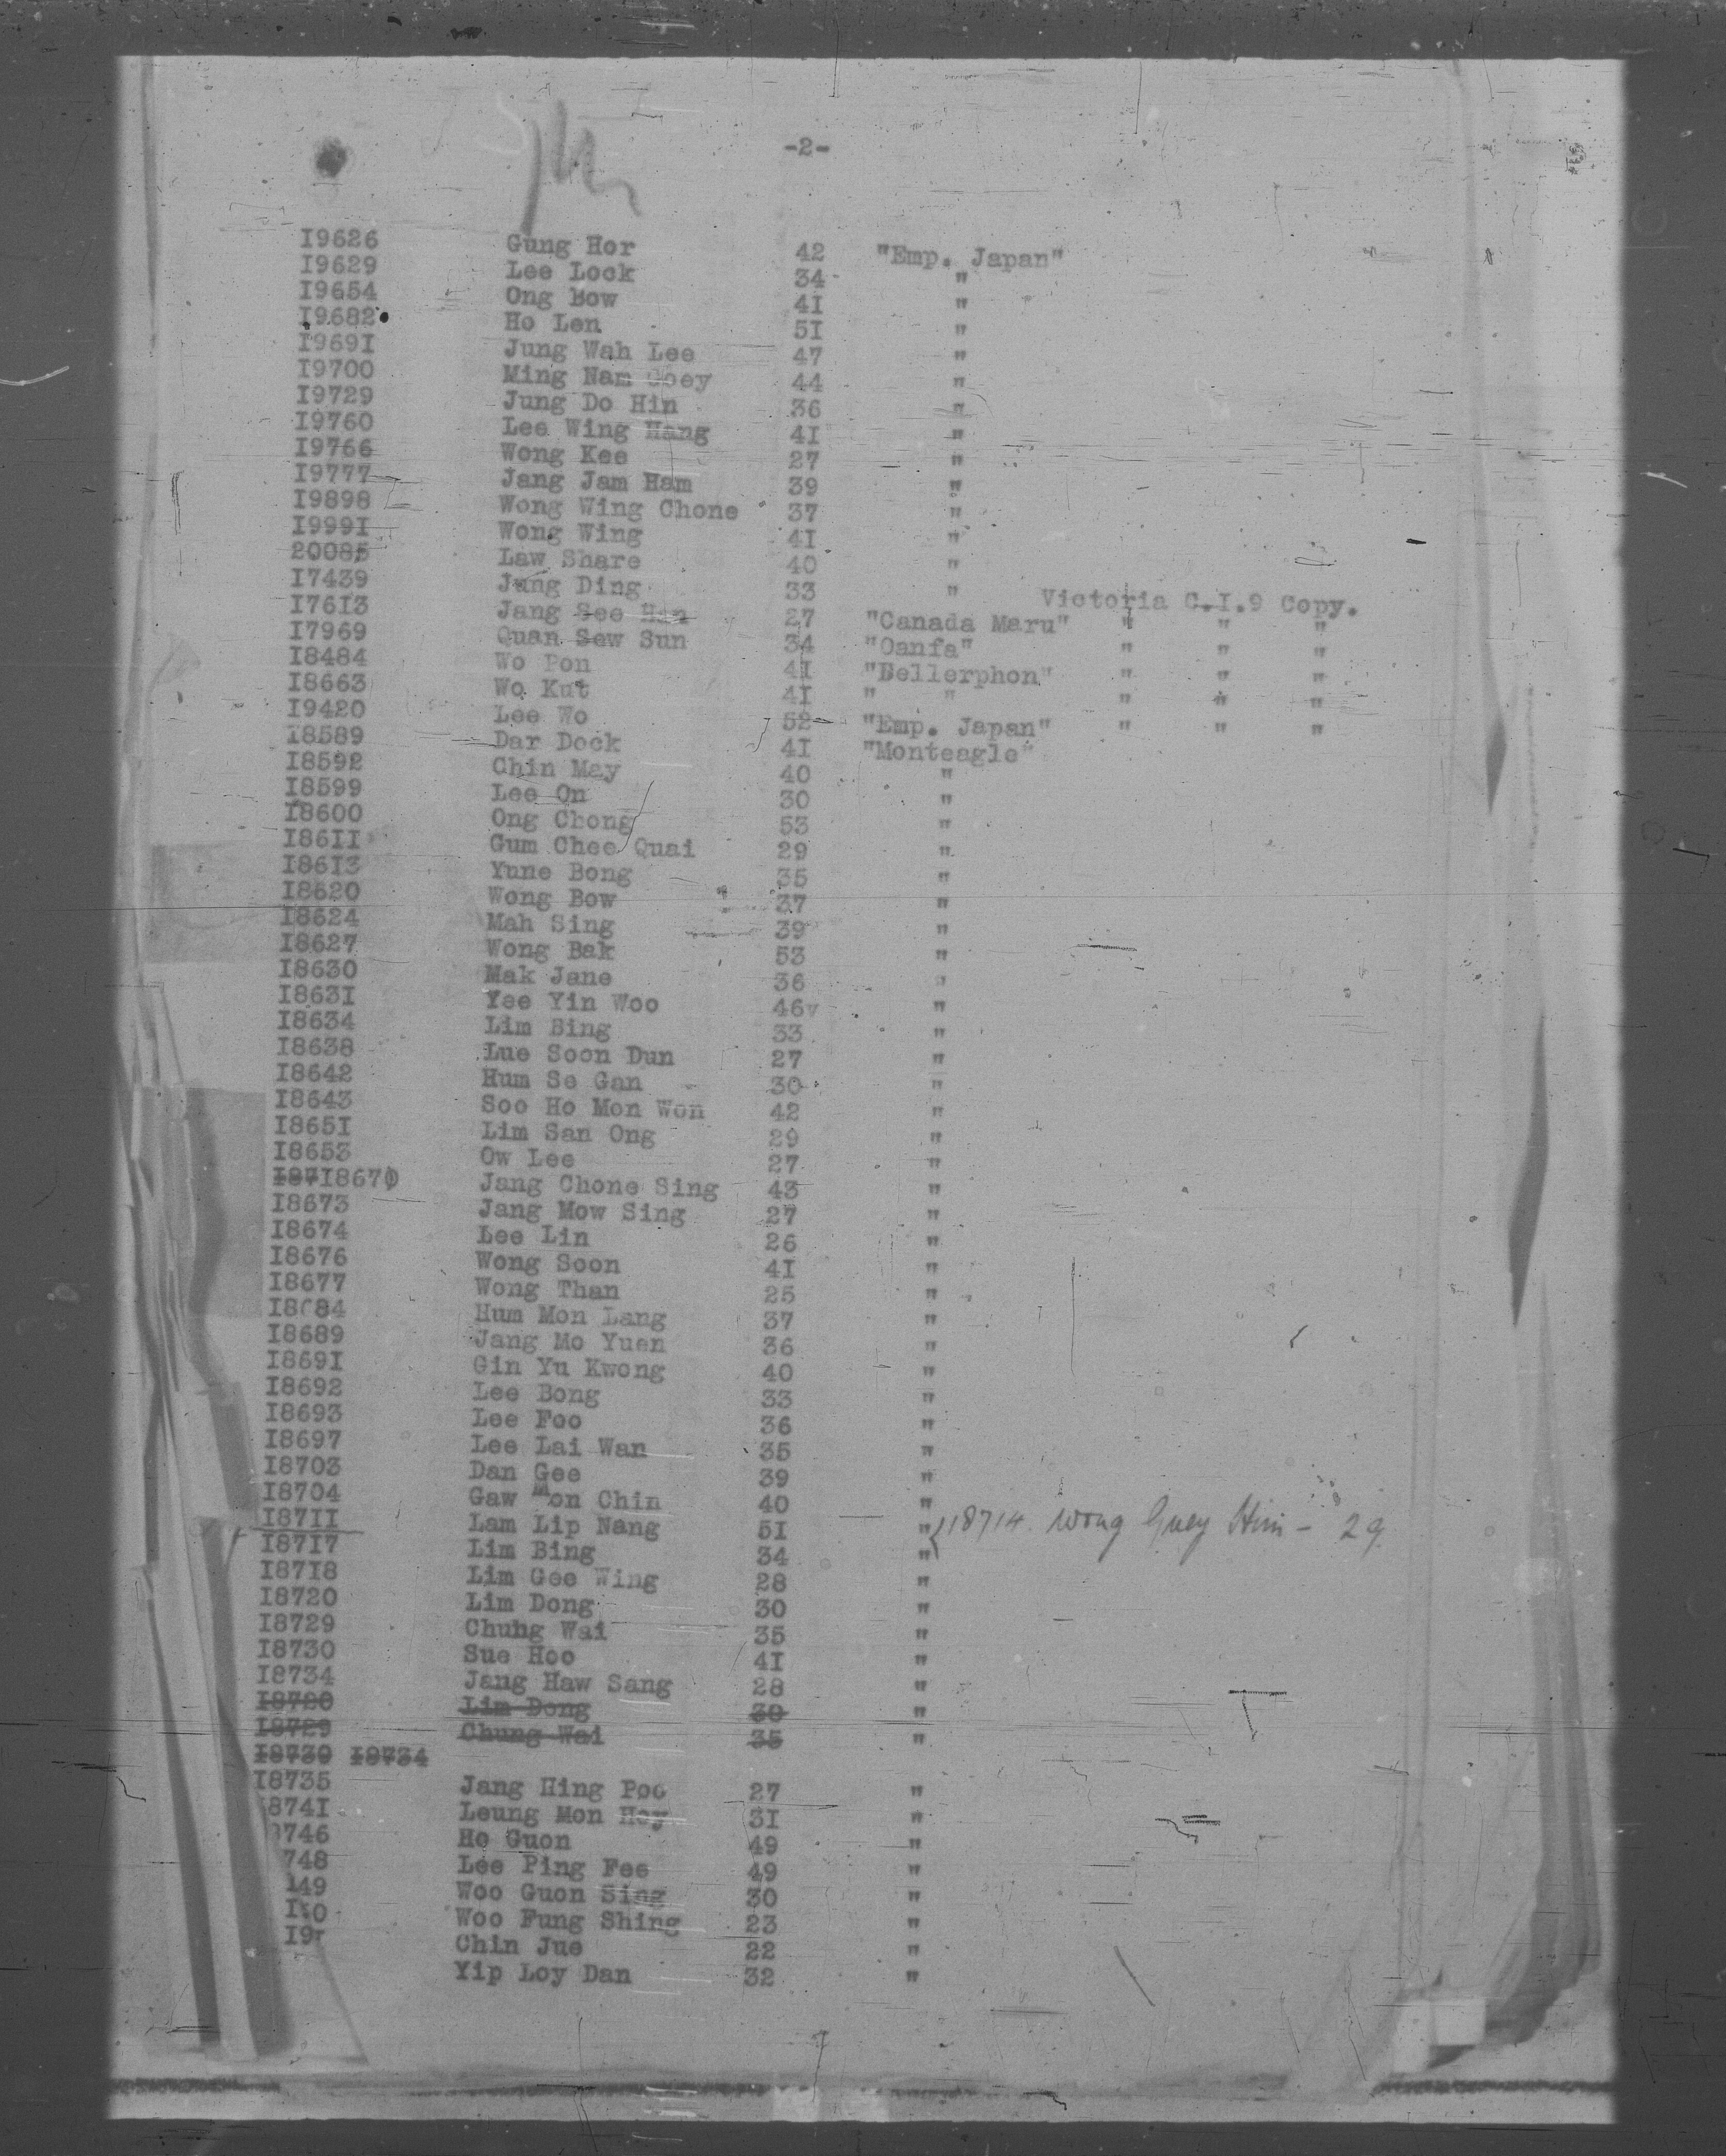 -2-
I9626 Gung Hor 42 "Emp. Japan"
I9629 Lee Lock 34 "
I9654 Ong Bow 4I "
I9682 Ho Len 5I "
I969I Jung Wah Lee 47 "
I9700 Ming Nam Joey 44 "
I9729 Jung Do Hin 36 "
I9760 Lee Wing Hang 4I "
I9766 Wong Kee 27 "
I9777 Jang Jam Ham 39 "
I9898 Wong Wing Chone 37 "
I999I Wong Wing 4I "
20085 Law Share 40 "
I7439 Jung Ding 33 " Victoria C.I.9 Copy.
I76I3 Jang See Han 27 "Canada Maru" " " "
I7969 Quan Sew Sun 34 "Oanfa" " " "
I8484 Wo Pon 4I "Bellerphon" " " "
I8663 Wo Kut 4I " " " " "
I9420 Lee Wo 52 "Emp. Japan" " " "
I8589 Dar Dock 4I "Monteagle"
I8592 Chin May 40 "
I8599 Lee On 30 "
I8600 Ong Chong 53 "
I86II Gum Chee Quai 29 "
I86I3 Yune Bong 35 "
I8620 Wong Bow 37 "
I8624 Mah Sing 39 "
I8627 Wong Bak 53 "
I8630 Mak Jane 36 "
I863I Yee Yin Woo 46 "
I8634 Lim Bing 33 "
I8638 Lue Soon Dun 27 "
I8642 Hum Se Gan 30 "
I8643 Soo Ho Mon Won 42 "
I865I Lim San Ong 29 "
I8653 Ow Lee 27 "
I87I8670 Jang Chone Sing 43 "
I8673 Jang Mow Sing 27 "
I8674 Lee Lin 26 "
I8676 Wong Soon 4I "
I8677 Wong Than 25 "
I8684 Hum Mon Lang 37 "
I8689 Jang Mo Yuen 36 "
I869I Gin Yu Kwong 40 "
I8692 Lee Bong 33 "
I8693 Lee Foo 36 "
I8697 Lee Lai Wan 35 "
I8703 Dan Gee 39 "
I8704 Gaw Mon Chin 40 "
I87II Lam Lip Nang 5I " 18714. Wong Guey Him - 29
I87I7 Lim Bing 34 "
I87I8 Lim Gee Wing 28 "
I8720 Lim Dong 30 "
I8729 Chung Wai 35 "
I8730 Sue Hoo 4I "
I8734 Jang Haw Sang 28 "
I8720 Lim Dong 30 "
I8729 Chung Wai 35 "
I8730 I8734
I8735 Jang Hing Poo 27 "
874I Leung Mon Hoy 3I "
746 Ho Guon 49 "
748 Lee Ping Fee 49 "
49 Woo Guon Sing 30 "
Woo Fung Shing 23 "
Chin Jue 22 "
Yip Loy Dan 32 "